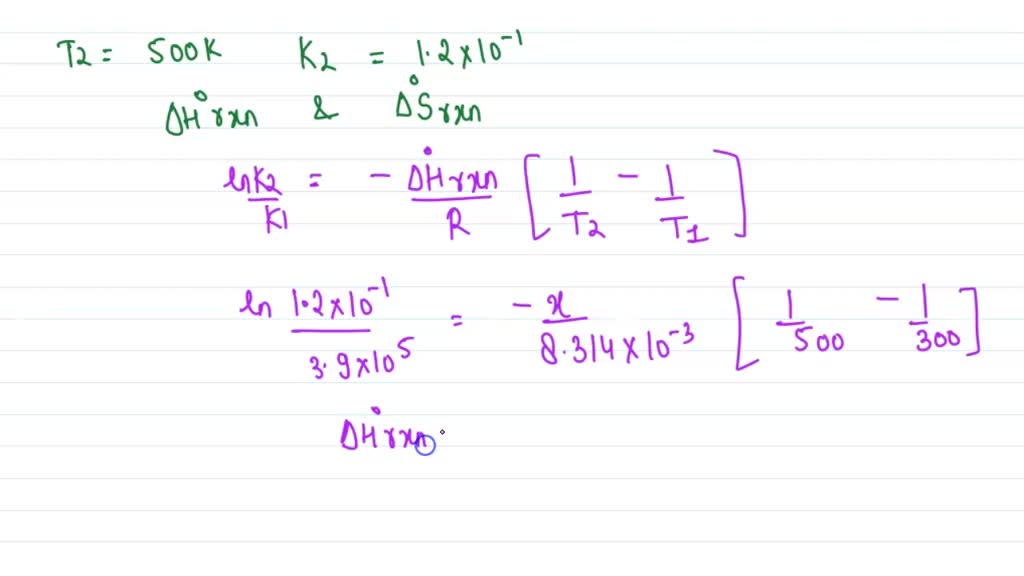 T2 = 500K K2 = 1.2×10⁻¹
ΔH°rxn & ΔS°rxn
ln K2/K1 = - ΔH°rxn/R [ 1/T2 - 1/T1 ]
ln 1.2×10⁻¹/3.9×10⁵ = - x/8.314×10⁻³ [ 1/500 - 1/300 ]
ΔH°rxn